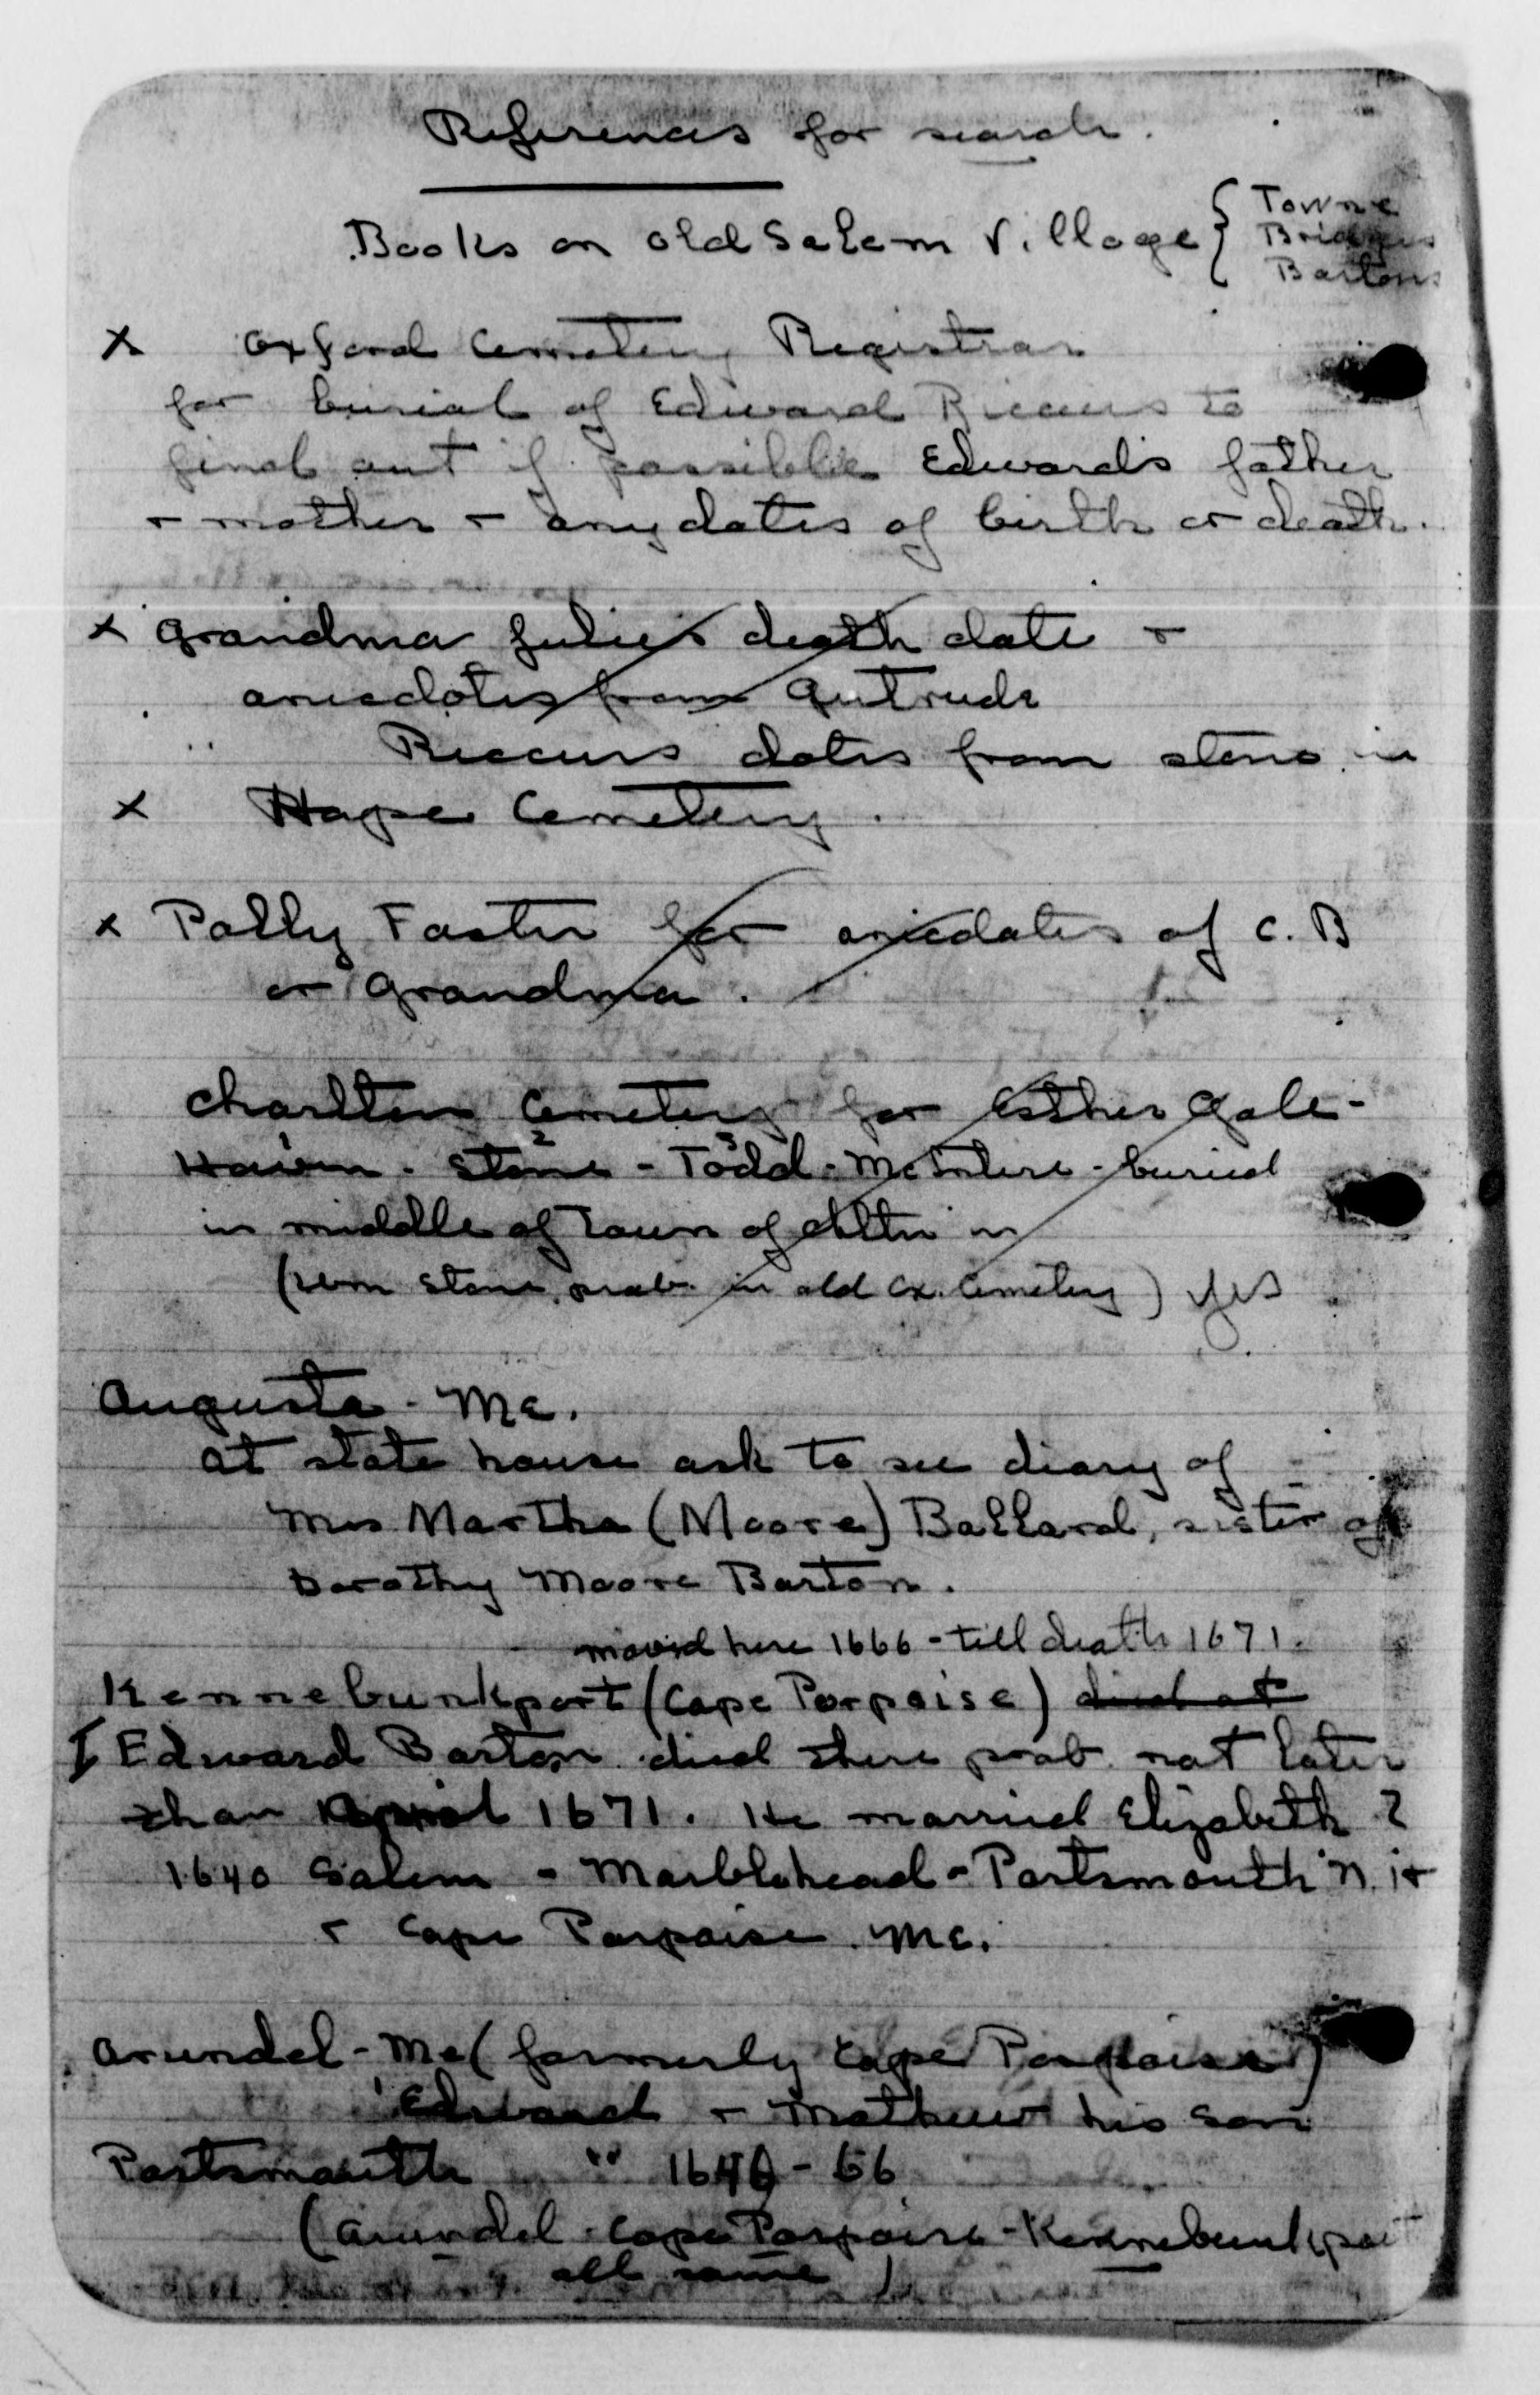 References for search.
Books on old Salem Village { Towne
Bridges
Bartons
x Oxford Cemetery Registrar
for burial of Edward Riccius to
find out if possible Edward's father
+ mother + any dates of birth or death.
x Grandma Julie's death date +
anecdotes from Gertrude
Riccius dates from stone in
x Hope Cemetery.
x Polly Foster for anecdotes of C. B
or Grandma.
Charlton Cemetery for Esther Gale-
1 2 3
Haven - Stone - Todd - McIntire - buried
in middle of Town of
( Stone, prob. in old Ox. Cemetery) yes
Augusta - Me.
at state house ask to see diary of
Mrs Martha (Moore) Ballard, sister of
Dorothy Moore Barton.
moved here 1666 - till death 1671.
Kennebunkport (Cape Porpoise) died at
I Edward Barton died there prob. not later
than 1671. He married Elizabeth ?
1640 Salem - Marblehead - Portsmouth N. H
+ Cape Porpoise. Me.
Arundel - Me (formerly Cape Porpoise)
Edward + Mathew his son
Portsmouth " 16 - 66
(Arundel - Cape Porpoise - Kennebunkport
all same)